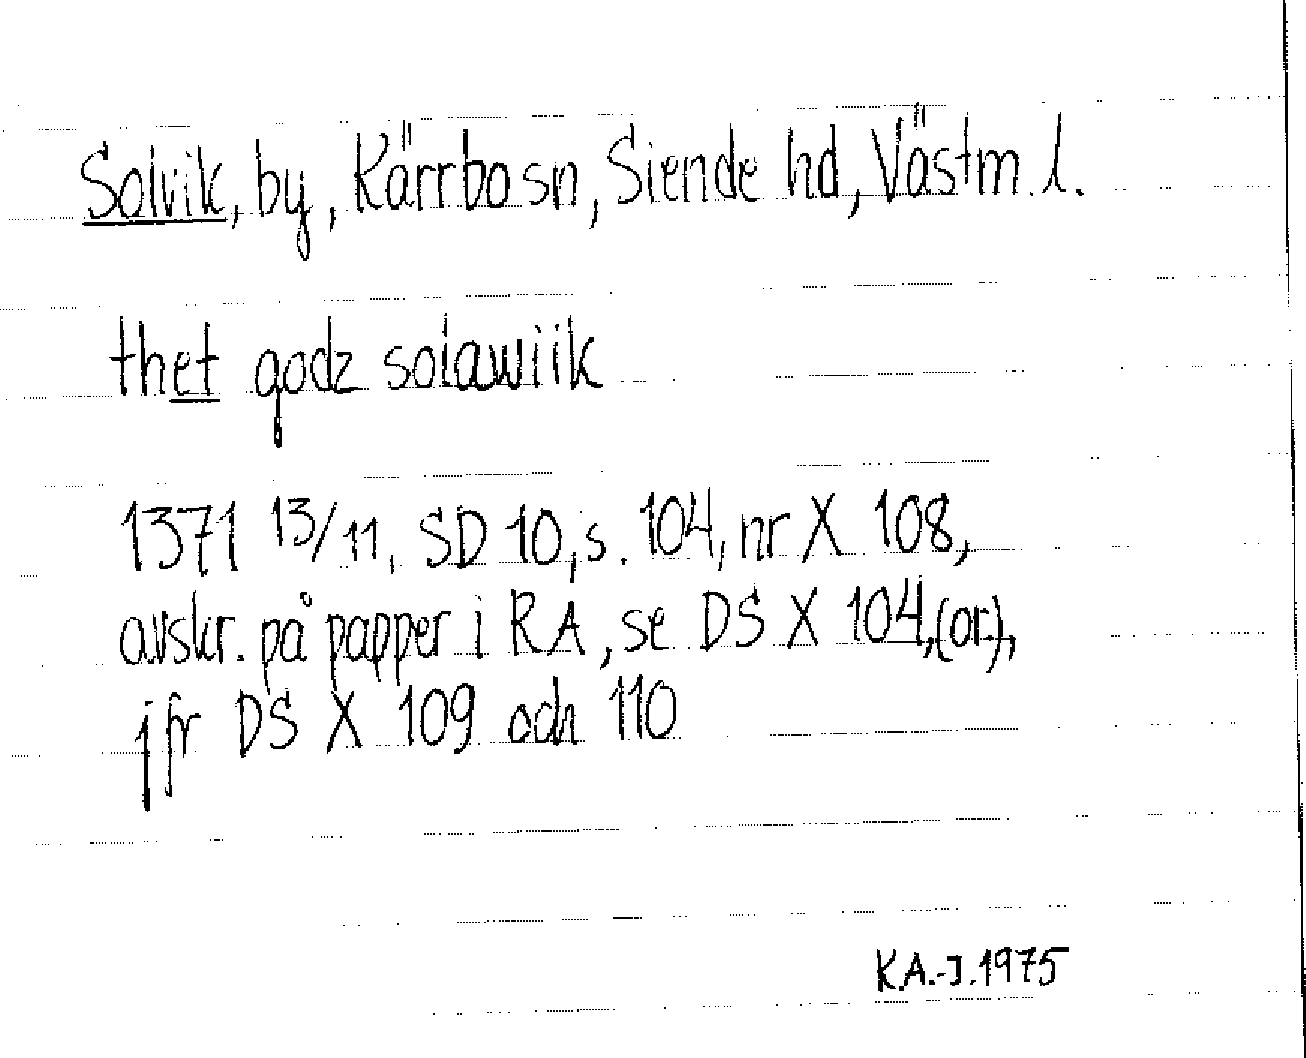 Solvik, by, Kärrbo sn, Siende hd, Västm. l.
thet godz solawiik
1371 13/11, SD 10, s. 104, nr X 108,
avskr. på papper i RA, se DS X 104, (or.),
jfr DS X 109 och 110
K.A.-J. 1975